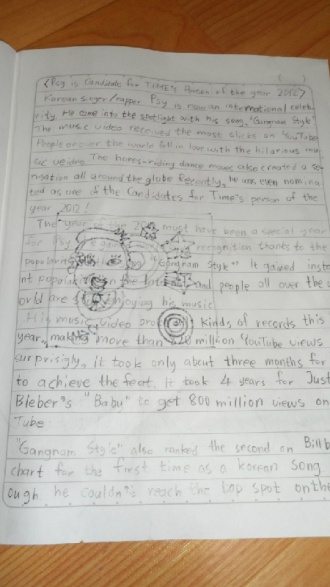 <Psy is Candidate for TIME's Person of the year 2012>
Korean singer/rapper Psy is now an international celeb-
city. He come into the spotlight with his song, "Gangnam Style"
The music video received the most clicks on YouTube
People over the world fall in love with the hilarious mu-
sic video. The horse-riding dance moves also created a sen-
sation all around the globe Recently, he was even nomina-
ted as one of the Candidates for Time's person of the
year 2012!
The year 2012 must have been a special year
for Psy recognition thanks to the
popularity "Gangnam Style" It gained inste
nt popular and people all over the
orld are enjoying his music
music video kinds of records this
year, making more than million YouTube views
surprisigly, it took only about three months for
to achieve the feat. It took 4 years for Just
Bieber's "Baby" to get 800 million views on
Tube
"Gangnam Style" also ranked the second on Billb
chart for the first time as a korean song
ough he couldn't reach the top spot onthe